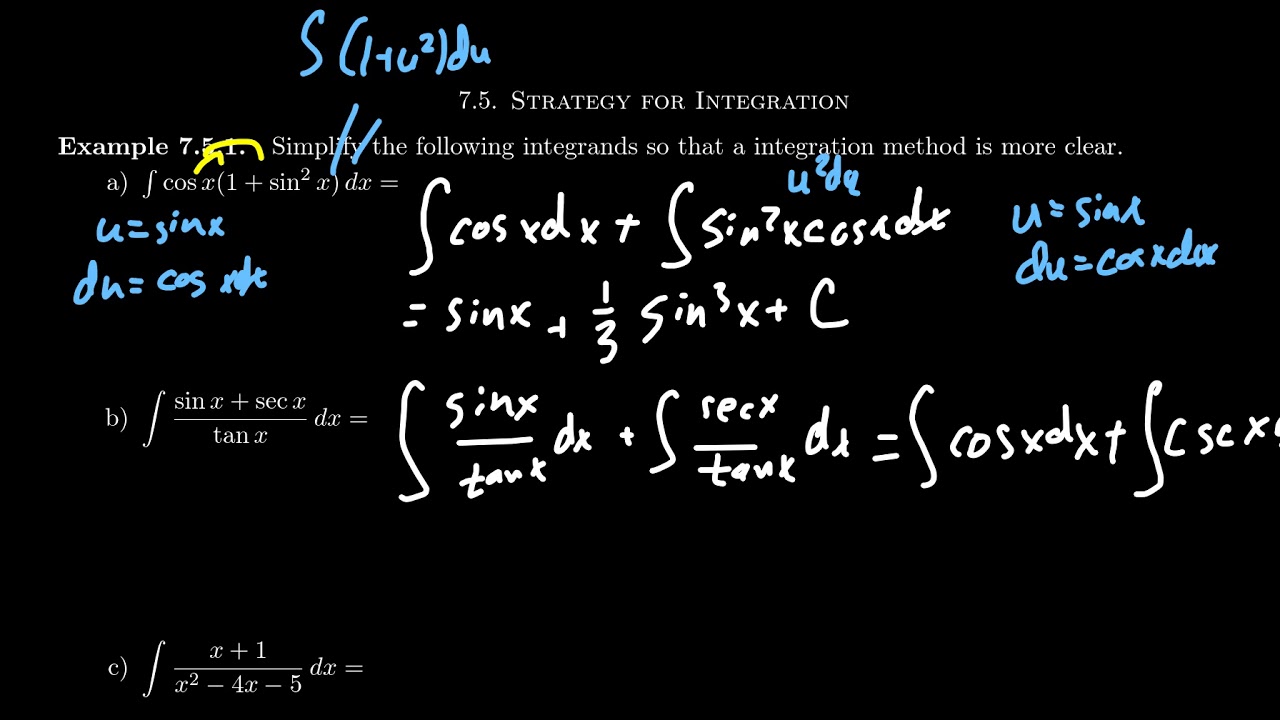 ∫ (1+u²)du
7.5. STRATEGY FOR INTEGRATION
Example 7.5.1. Simplify the following integrands so that a integration method is more clear.
a) ∫ cos x(1 + sin² x) dx = ∫ cosxdx + ∫ sin²xcosxdx
u²du
u=sinx
du=cosxdx
u=sinx
du=cosxdx
= sinx + 1/3 sin³x + C
b) ∫ (sin x + sec x)/(tan x) dx = ∫ sinx/tanx dx + ∫ secx/tanx dx = ∫ cosxdx + ∫ cscx
c) ∫ (x + 1)/(x² − 4x − 5) dx =